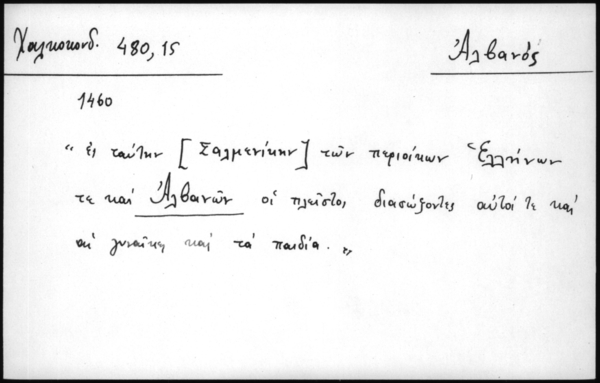 Χαλκοκονδ. 480,15
Ἀλβανός
1460
" ἐς ταύτην [Σαλμενίκην] τῶν περιοίκων Ἑλλήνων
τε καὶ Ἀλβανῶν οἱ πλεῖστοι διασώζοντες αὐτοί τε καὶ
αἱ γυναῖκες καὶ τὰ παιδία. "